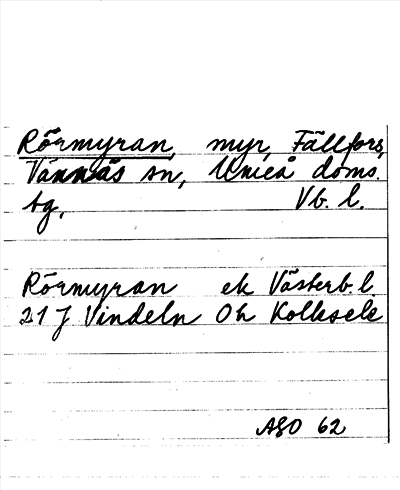 Rörmyran, myr, Fällfors,
Vännäs sn, Umeå doms.
tg, Vb. l.
Rörmyran ek Västerb. l
21 J Vindeln Oh Kolksele
ASO 62